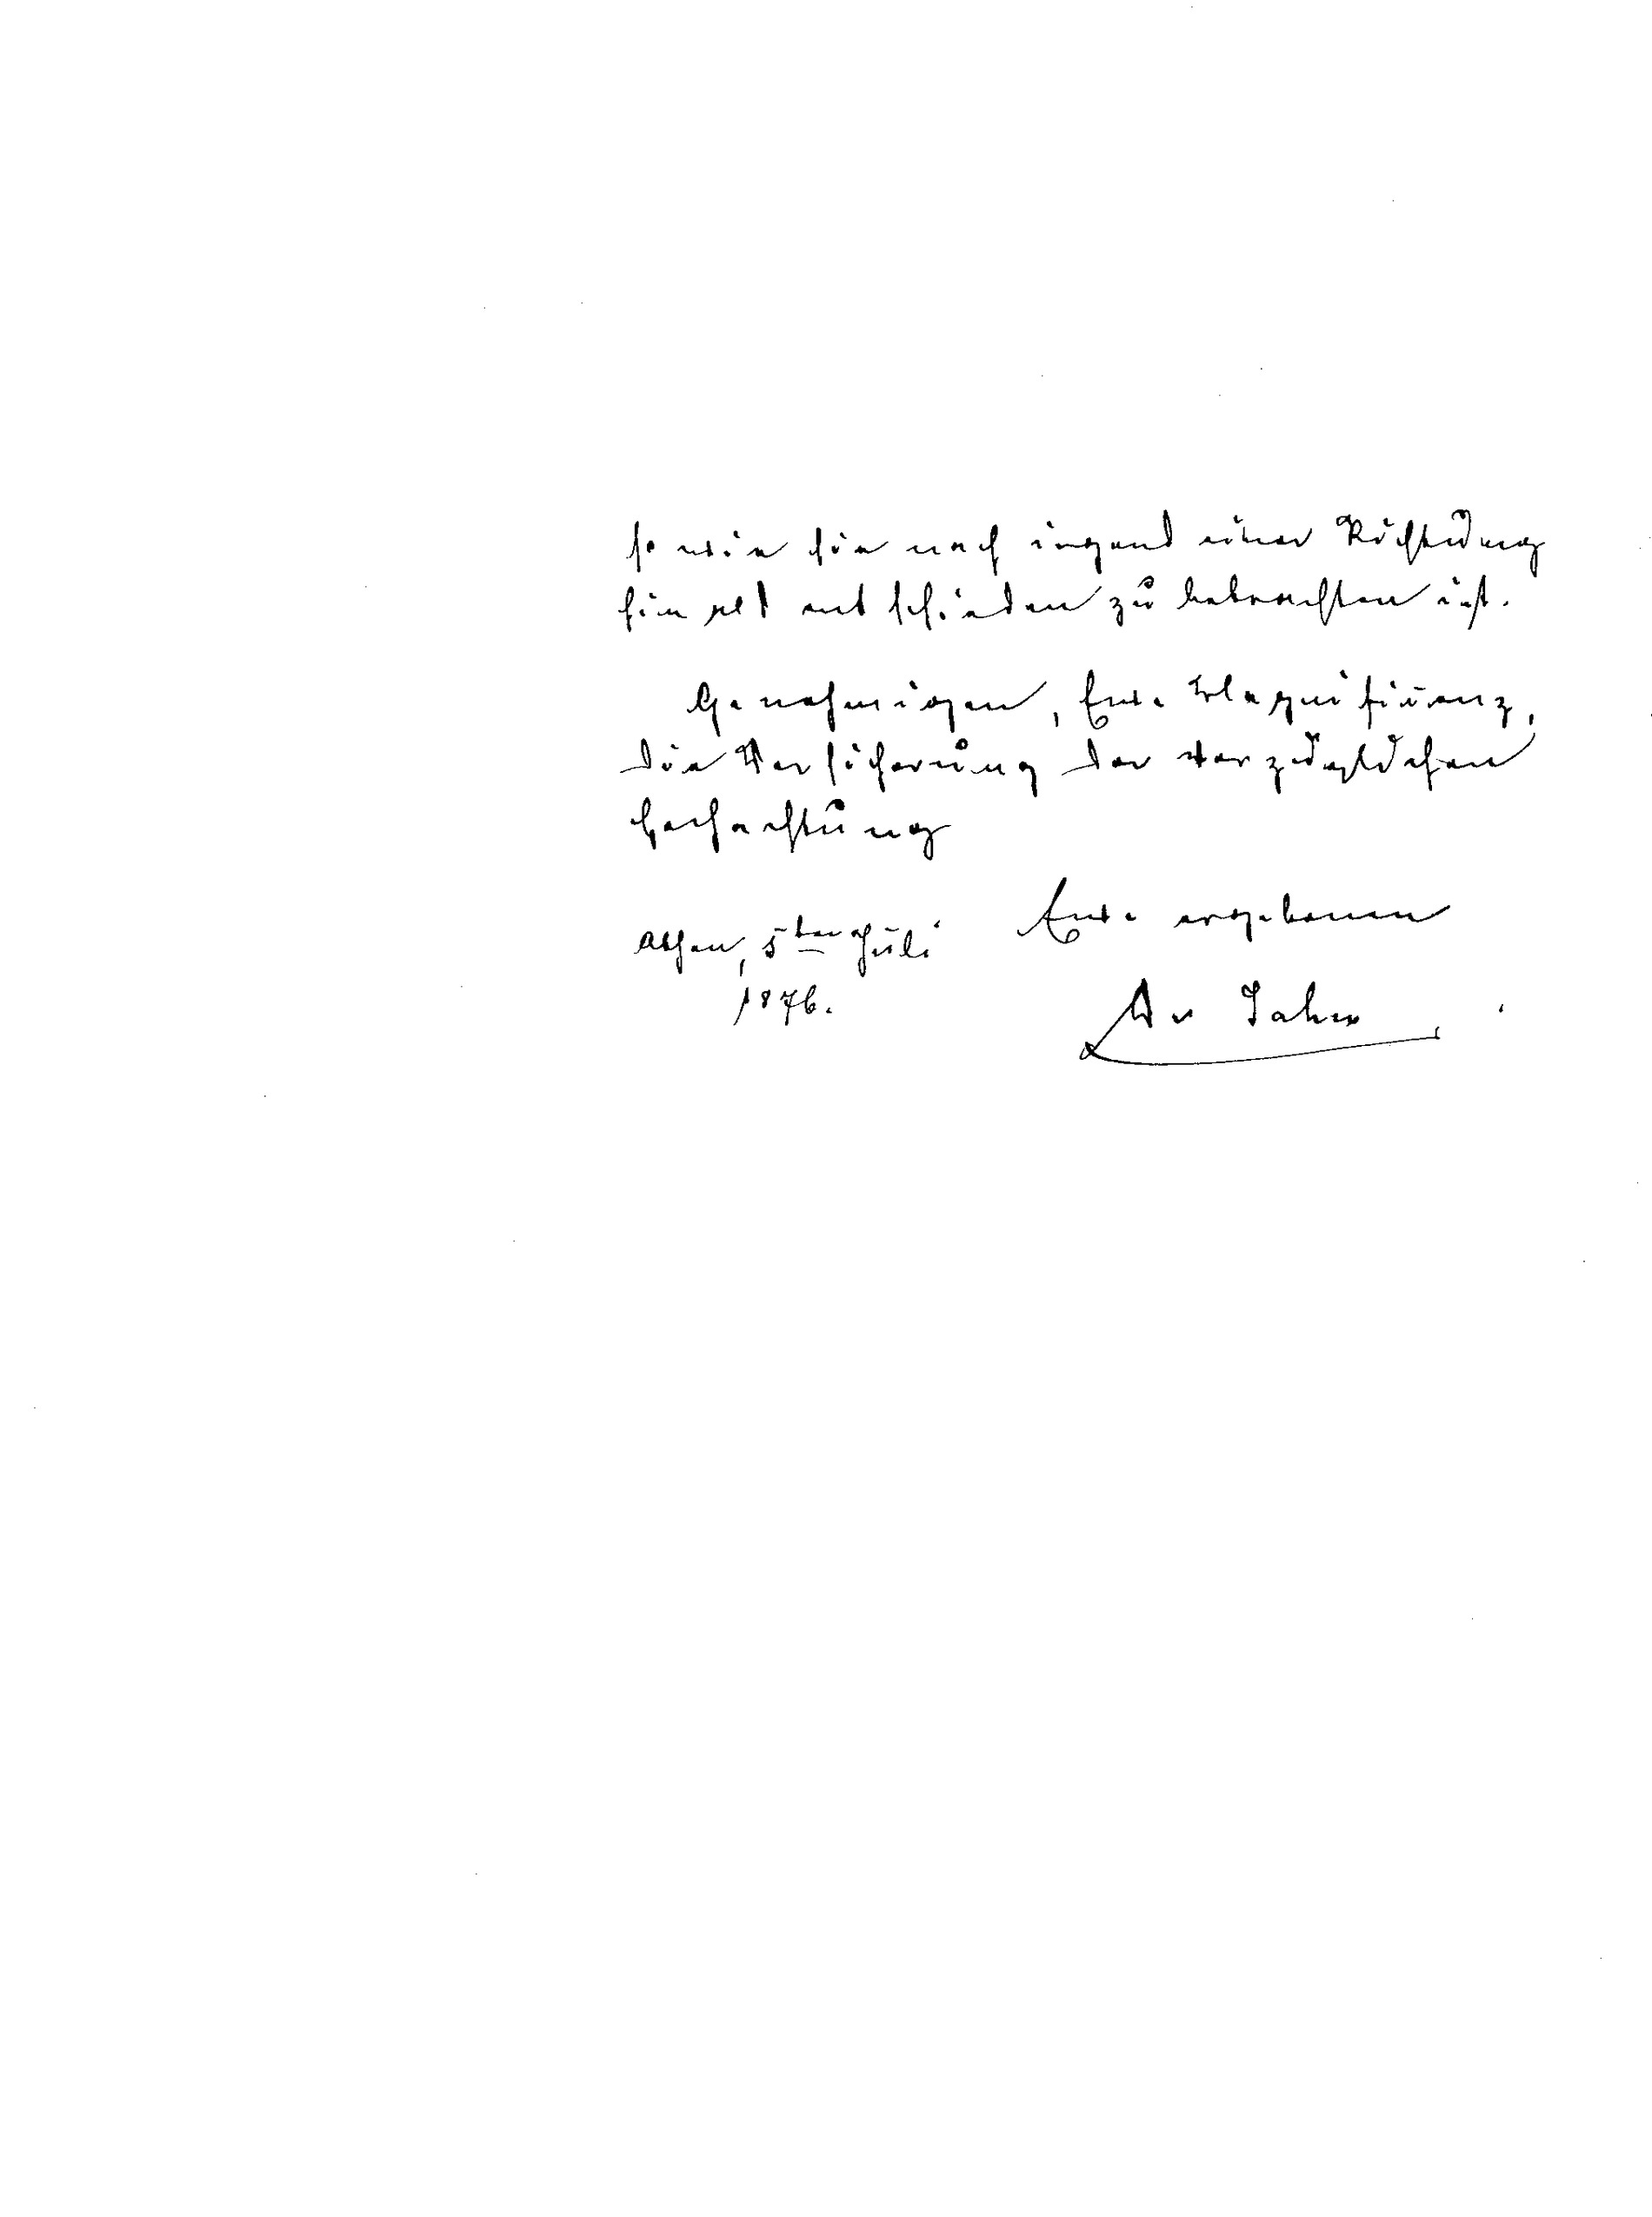 so wie sie nach irgend einer Richtung
hin als entschieden zu betrachten ist.
Genehmigen, Eure Magnifizenz,
die Versicherung der vorzüglichen
Hochachtung
Eure ergebenen
Athen, 5ten Juli
1876.